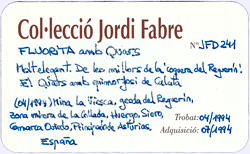 Col·lecció Jordi Fabre
FLUORITA amb Quars Nº JFD241
Molt elegant. De les millors de la "coquera del Reguerin".
El Quars amb epimorfosi de Calcita
(04/1994) Mina La Viesca, geoda del Reguerin,
Zona minera de La Collada, Huergo, Siero,
Comarca Oviedo, Principado de Asturias,
España
Trobat: 04/1994
Adquisició: 07/1994